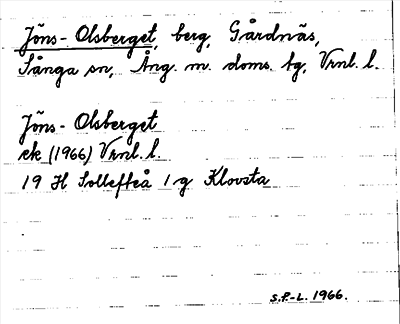 Jöns-Olsberget, berg, Gårdnäs,
Sånga sn, Ång. m. doms. tg, Vrnl. l.
Jöns-Olsberget
ek (1966) Vrnl. l.
19 H Sollefteå 1 g Klovsta
S.F.-L. 1966.